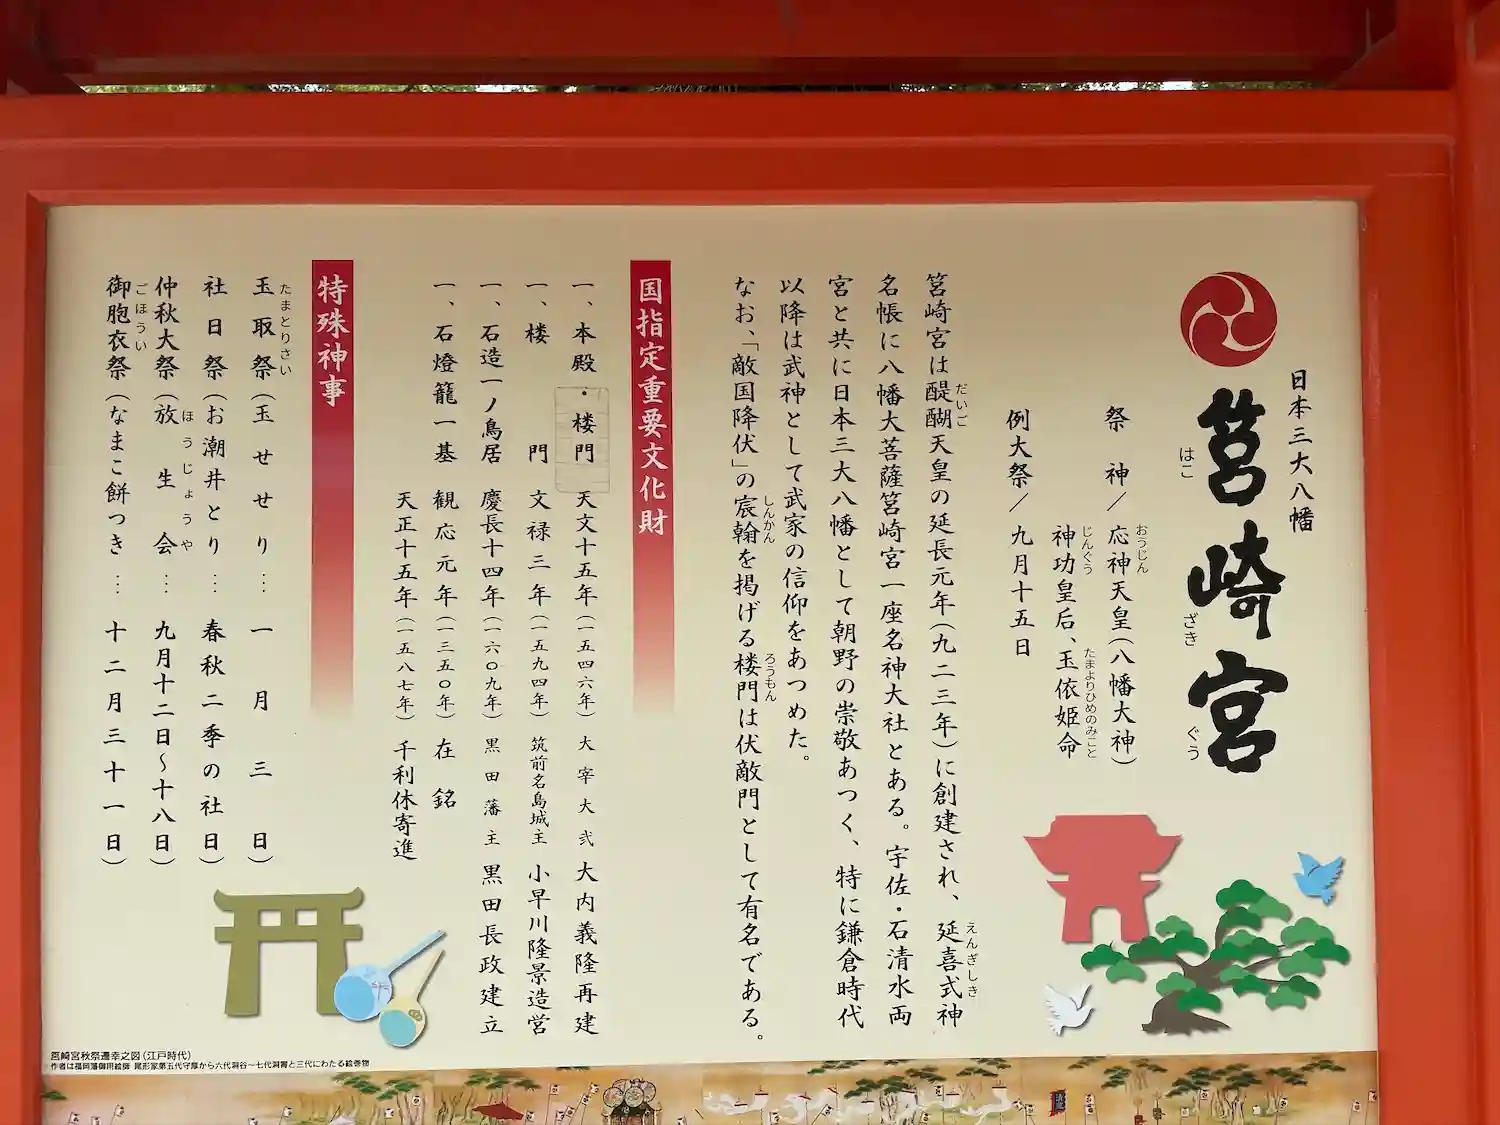 日本三大八幡
筥崎宮
はこ
ざき
ぐう
祭神／応神天皇（八幡大神）
おうじん
神功皇后、玉依姫命
じんぐう
たまよりひめのみこと
例大祭／九月十五日
筥崎宮は醍醐天皇の延長元年（九二三年）に創建され、延喜式神
だいご
えんぎしき
名帳に八幡大菩薩筥崎宮一座名神大社とある。宇佐・石清水両
宮と共に日本三大八幡として朝野の崇敬あつく、特に鎌倉時代
以降は武神として武家の信仰をあつめた。
なお、「敵国降伏」の宸翰を掲げる楼門は伏敵門として有名である。
しんかん
ろうもん
国指定重要文化財
一、本殿・楼門 天文十五年（一五四六年）大宰大弐 大内義隆再建
一、楼門 文禄三年（一五九四年）筑前名島城主 小早川隆景造営
一、石造一ノ鳥居 慶長十四年（一六〇九年）黒田藩主 黒田長政建立
一、石燈籠一基 観応元年（一三五〇年）在銘
天正十五年（一五八七年）千利休寄進
特殊神事
玉取祭（玉せせり… 一月三日）
たまとりさい
社日祭（お潮井とり… 春秋二季の社日）
仲秋大祭（放生会… 九月十二日～十八日）
ほうじょうや
御胞衣祭（なまこ餅つき… 十二月三十一日）
ごほうい
筥崎宮秋祭遷幸之図（江戸時代）
作者は福岡藩御用絵師 尾形家第五代守厚から六代洞谷～七代洞霄と三代にわたる絵巻物